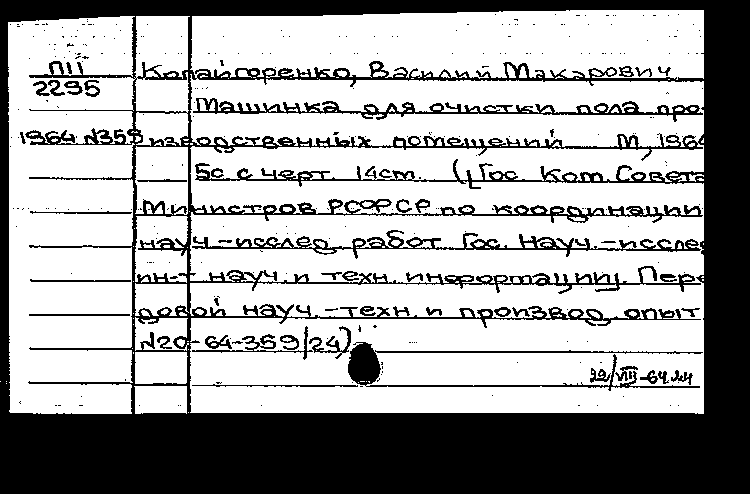 П11
2295
1964 N359
Копайгоренко, Василий Макарович
Машинка для очистки пола про-
изводственных помещений М, 1964
5с с черт. 14см. ([Гос. Ком. Совета
Министров РСФСР по координации
науч.-исслед. работ Гос. Науч.-исслед
ин-т науч. и техн. информации]. Пере
довой науч.-техн. и производ. опыт
N20-64-359/24)
22/VIII-64